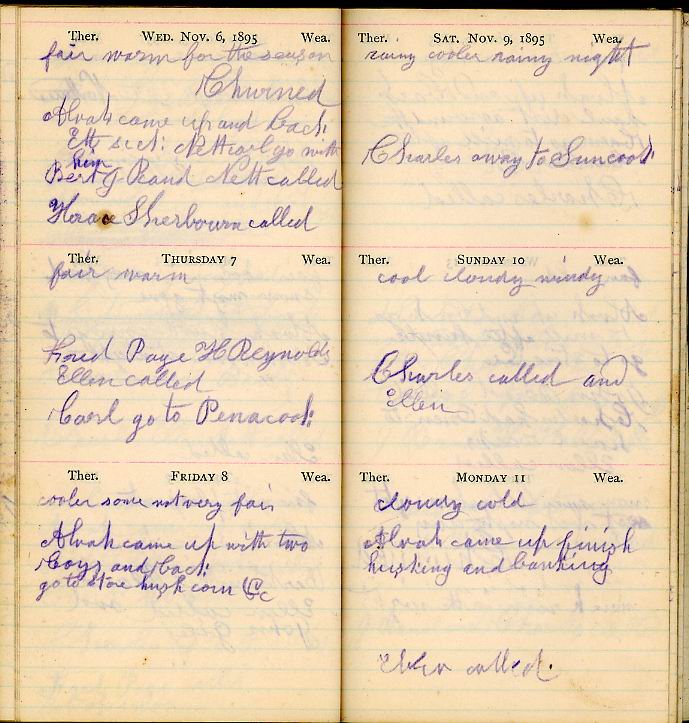 Ther. WED. NOV. 6, 1895 Wea.
fair warm for the season
Churned
Alvah came up and back
Nett carl go with
him
Bert G and Nett called
Horace Sherbourn called
Ther. THURSDAY 7 Wea.
fair warm
Fred Page H Reynolds
Ellen called
Carl go to Penacook
Ther. FRIDAY 8 Wea.
cooler some not very fair
Alvah came up with two
Boys and back
go to store husk corn &c
Ther. SAT. NOV. 9, 1895 Wea.
rainy cooler rainy night
Charles away to Suncook
Ther. SUNDAY 10 Wea.
cool cloudy windy
Charles called and
Ellen
Ther. MONDAY 11 Wea.
cloudy cold
Alvah came up finish
husking and banking
Ellen called.